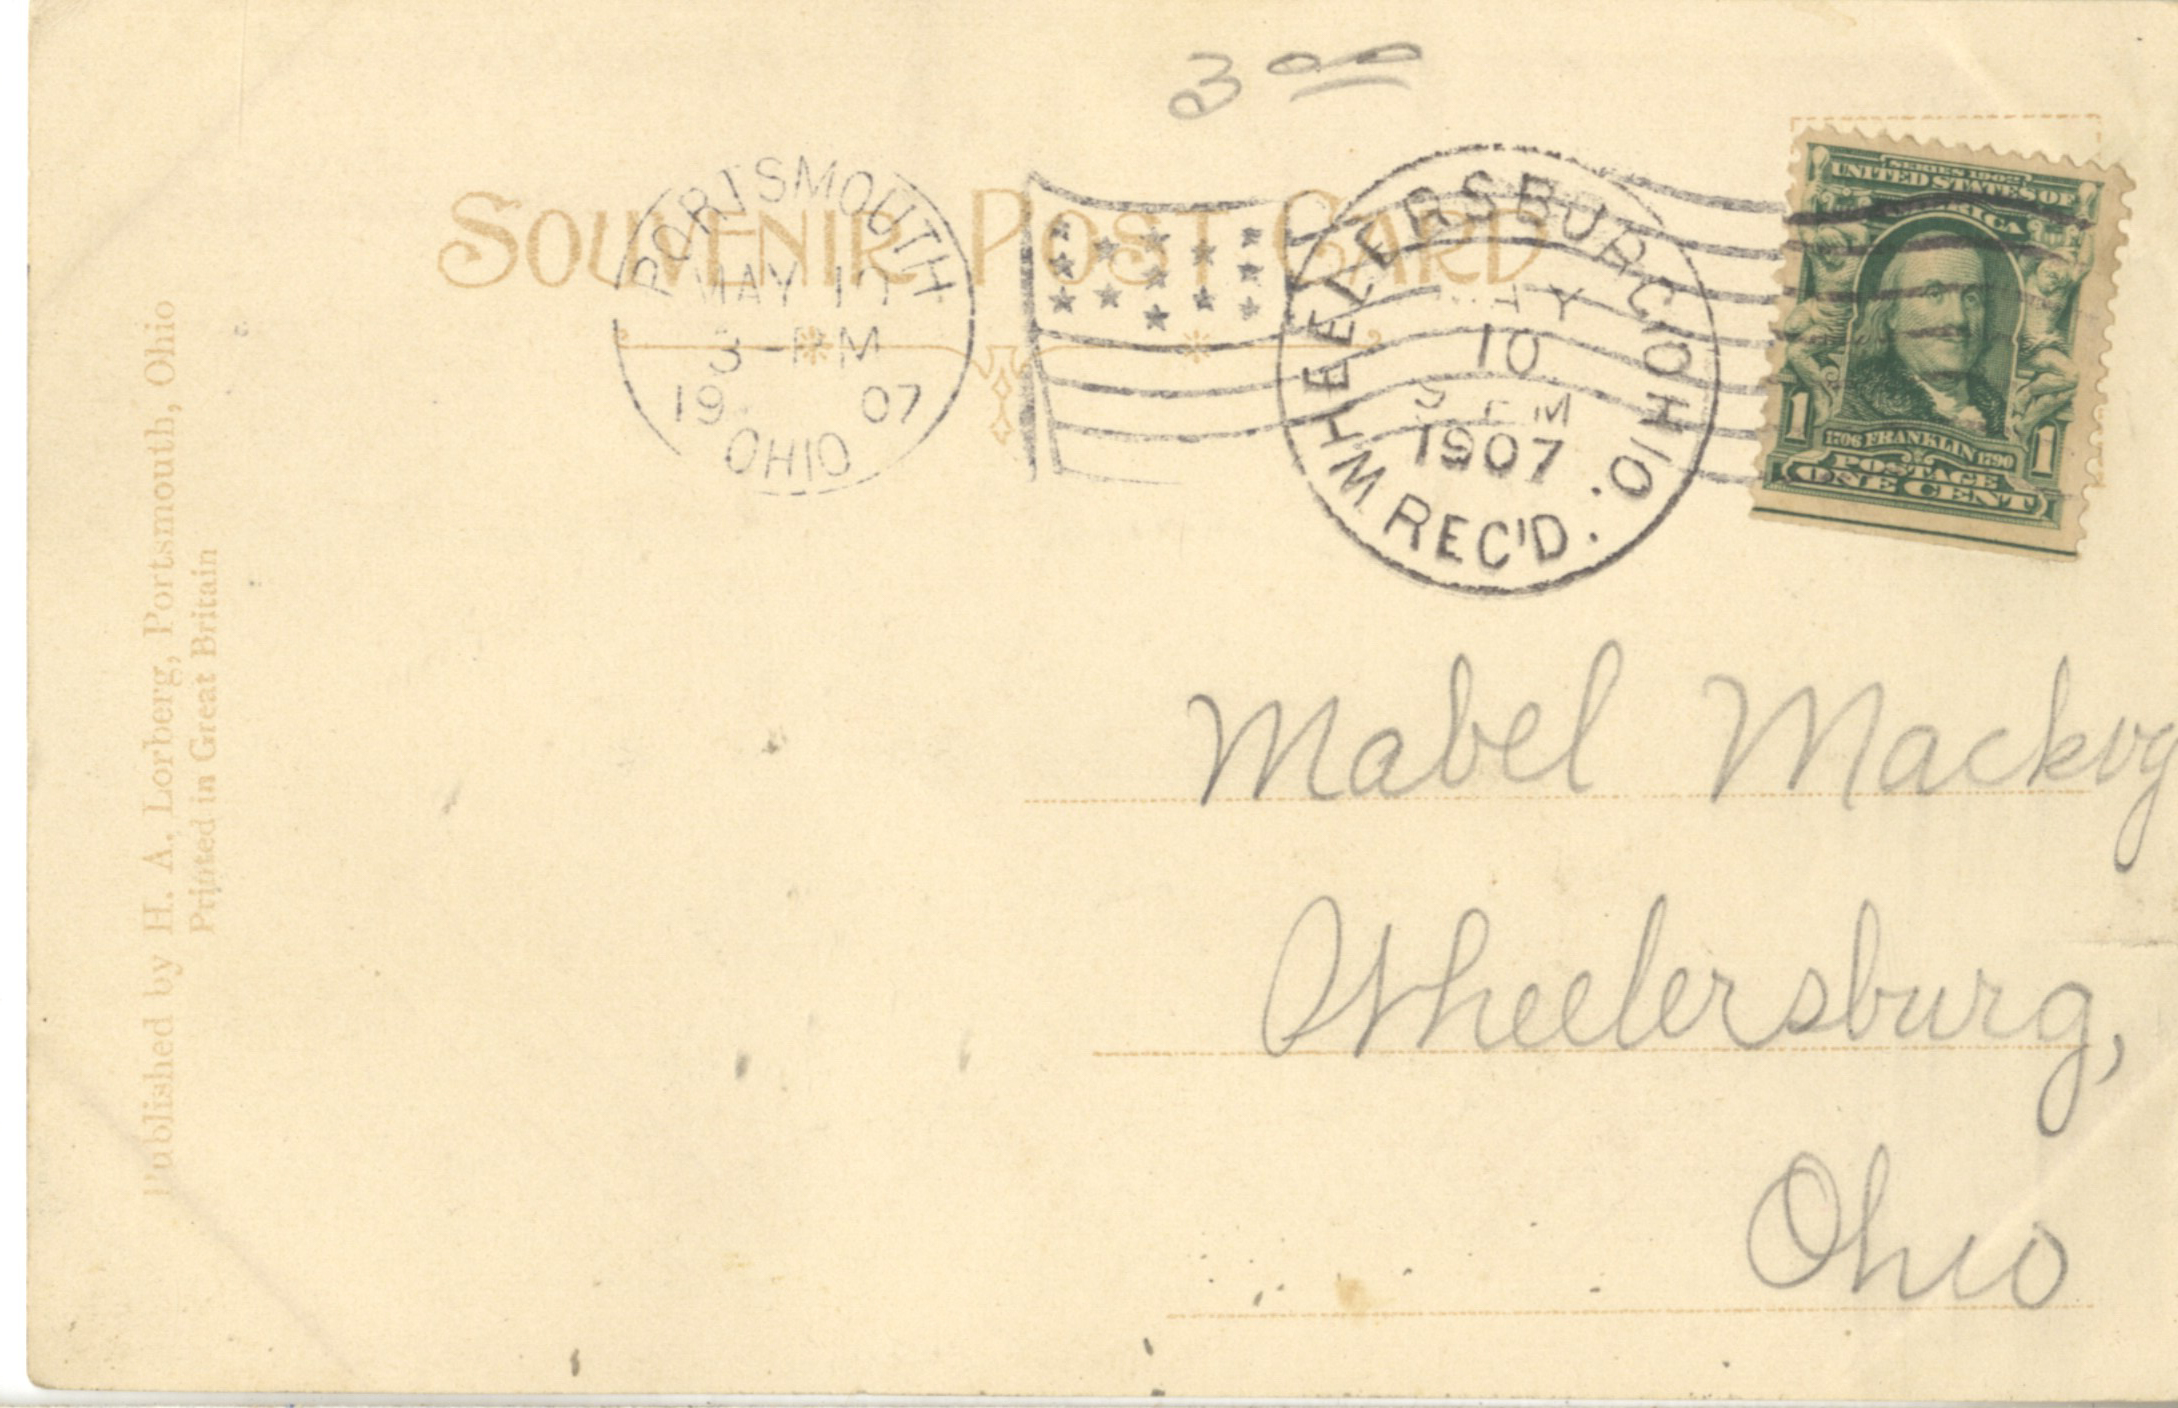 3 00
SOUVENIR POST CARD
PORTSMOUTH
MAY 10
3-PM
19 07
OHIO
WHEELERSBURG, OHIO.
10
1907
REC'D.
SERIES 1902
UNITED STATES OF
AMERICA
1 1706 FRANKLIN 1790 1
POSTAGE
ONE CENT
Published by H. A. Lorberg, Portsmouth, Ohio
Printed in Great Britain
Mabel
Wheelersburg,
Ohio